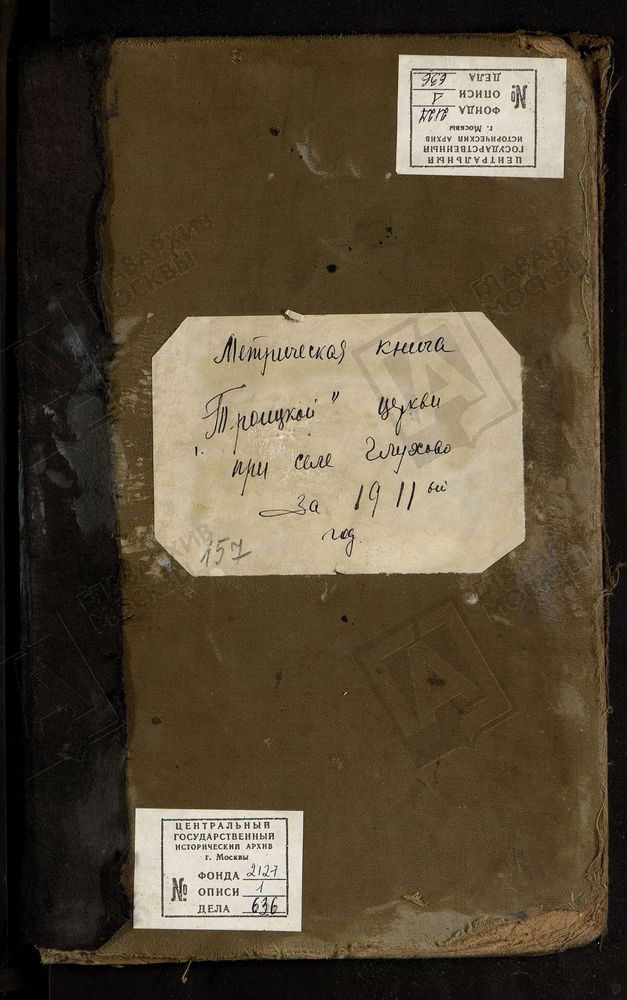 ЦЕНТРАЛЬНЫЙ
ГОСУДАРСТВЕННЫЙ
ИСТОРИЧЕСКИЙ АРХИВ
г. Москвы
ФОНДА 2127
№ ОПИСИ 1
ДЕЛА 636
Метрическая книга
"Троицкой" церкви
при селе Глухово
За 1911ый
год.
157
ЦЕНТРАЛЬНЫЙ
ГОСУДАРСТВЕННЫЙ
ИСТОРИЧЕСКИЙ АРХИВ
г. Москвы
ФОНДА 2127
№ ОПИСИ 1
ДЕЛА 636
ГЛАВАРХИВ
МОСКВЫ